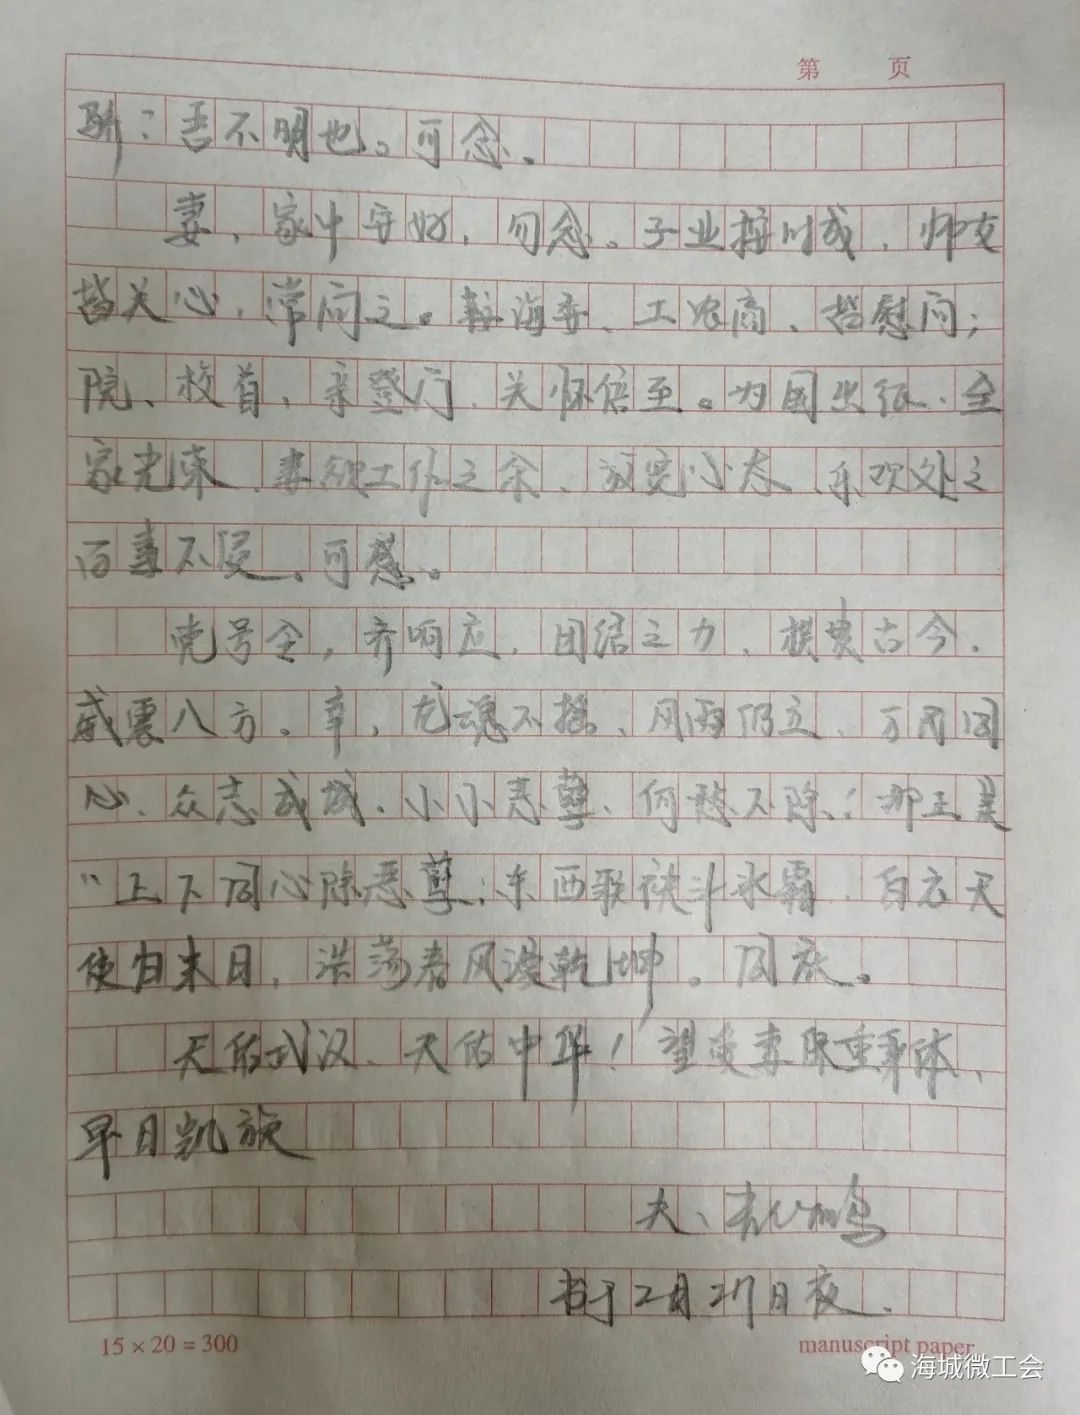 第 页
吾不明也。可念。
妻，家中安好，勿念。子业按时成，师友
皆关心，常问之。鞍海齐、工农商、皆慰问；
院、校首，亲登门、关怀倍至。为国出征、全
家光荣、妻欲工作之余、放宽心态、乐观处之
百事不侵、可慰。
党号令，齐响应，团结之力、横贯古今，
威震八方。幸，龙魂不摇、风雨仍立、万民同
心、众志成城、小小恶孽、何愁不除！那正是
“上下同心除恶孽；东西联袂斗冰霜、白衣天
使归来日，浩荡春风漫乾坤。同庆。
天佑武汉、天佑中华！望爱妻保重身体、
早日凯旋
夫、
书于2月21日夜.
15 × 20 = 300
manuscript paper
海城微工会